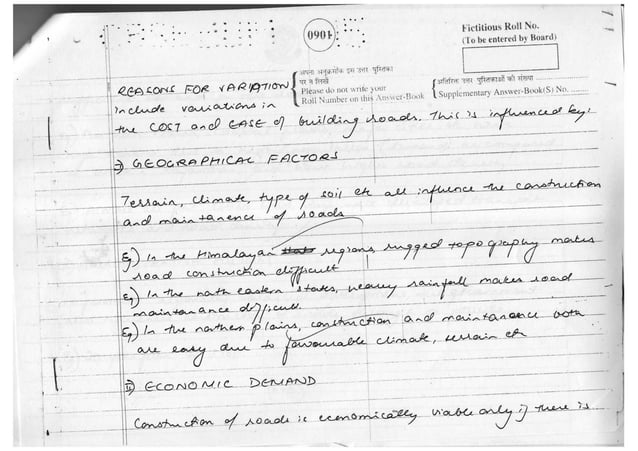 0901
Fictitious Roll No.
(To be entered by Board)
अपना अनुक्रमांक इस उत्तर पुस्तिका
पर न लिखें
Please do not write your
Roll Number on this Answer-Book
अतिरिक्त उत्तर पुस्तिकाओं की संख्या
Supplementary Answer-Book(S) No. .........
REASONS FOR VARIATION
include variations in
the COST and EASE of building roads. This is influenced by:
i) GEOGRAPHICAL FACTORS
Terrain, climate, type of soil etc all influence the construction
and maintanence of roads
Eg) In the Himalayan regions, rugged topography makes
road construction difficult
Eg) In the north eastern states, heavy rainfall makes road
maintanence difficult.
Eg) In the northern plains, construction and maintanance both
are easy due to favourable climate, terrain etc
ii) ECONOMIC DEMAND
Construction of roads is economically viable only if there is